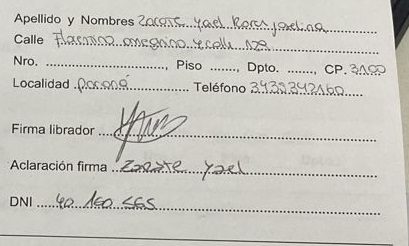 Apellido y Nombres Zarate Yael Karen Joelina
Calle Flaminio ameghino y calle 129
Nro. ............, Piso ......., Dpto. ......., CP. 3100
Localidad .Paraná............ Teléfono 3435342160.....
Firma librador ....
Aclaración firma ...Zarate Yael....
DNI ....40 160 565....